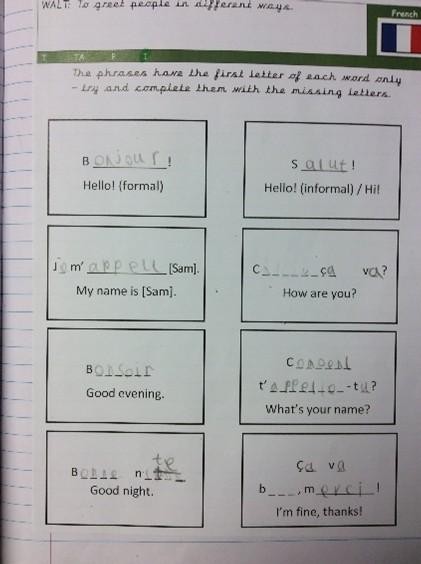 WALT: To greet people in different ways.
French
T TA P I
The phrases have the first letter of each word only
- try and complete them with the missing letters.
Bonjour!
Hello! (formal)
Salut!
Hello! (informal) / Hi!
Je m'appell [Sam].
My name is [Sam].
ça va?
How are you?
Bonsoir
Good evening.
t' -tu?
What's your name?
Bonne
Good night.
Ça va
b___, merci!
I'm fine, thanks!